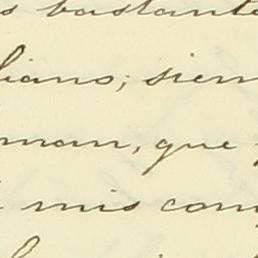 s bastante
biano; siem
man, que
mis com